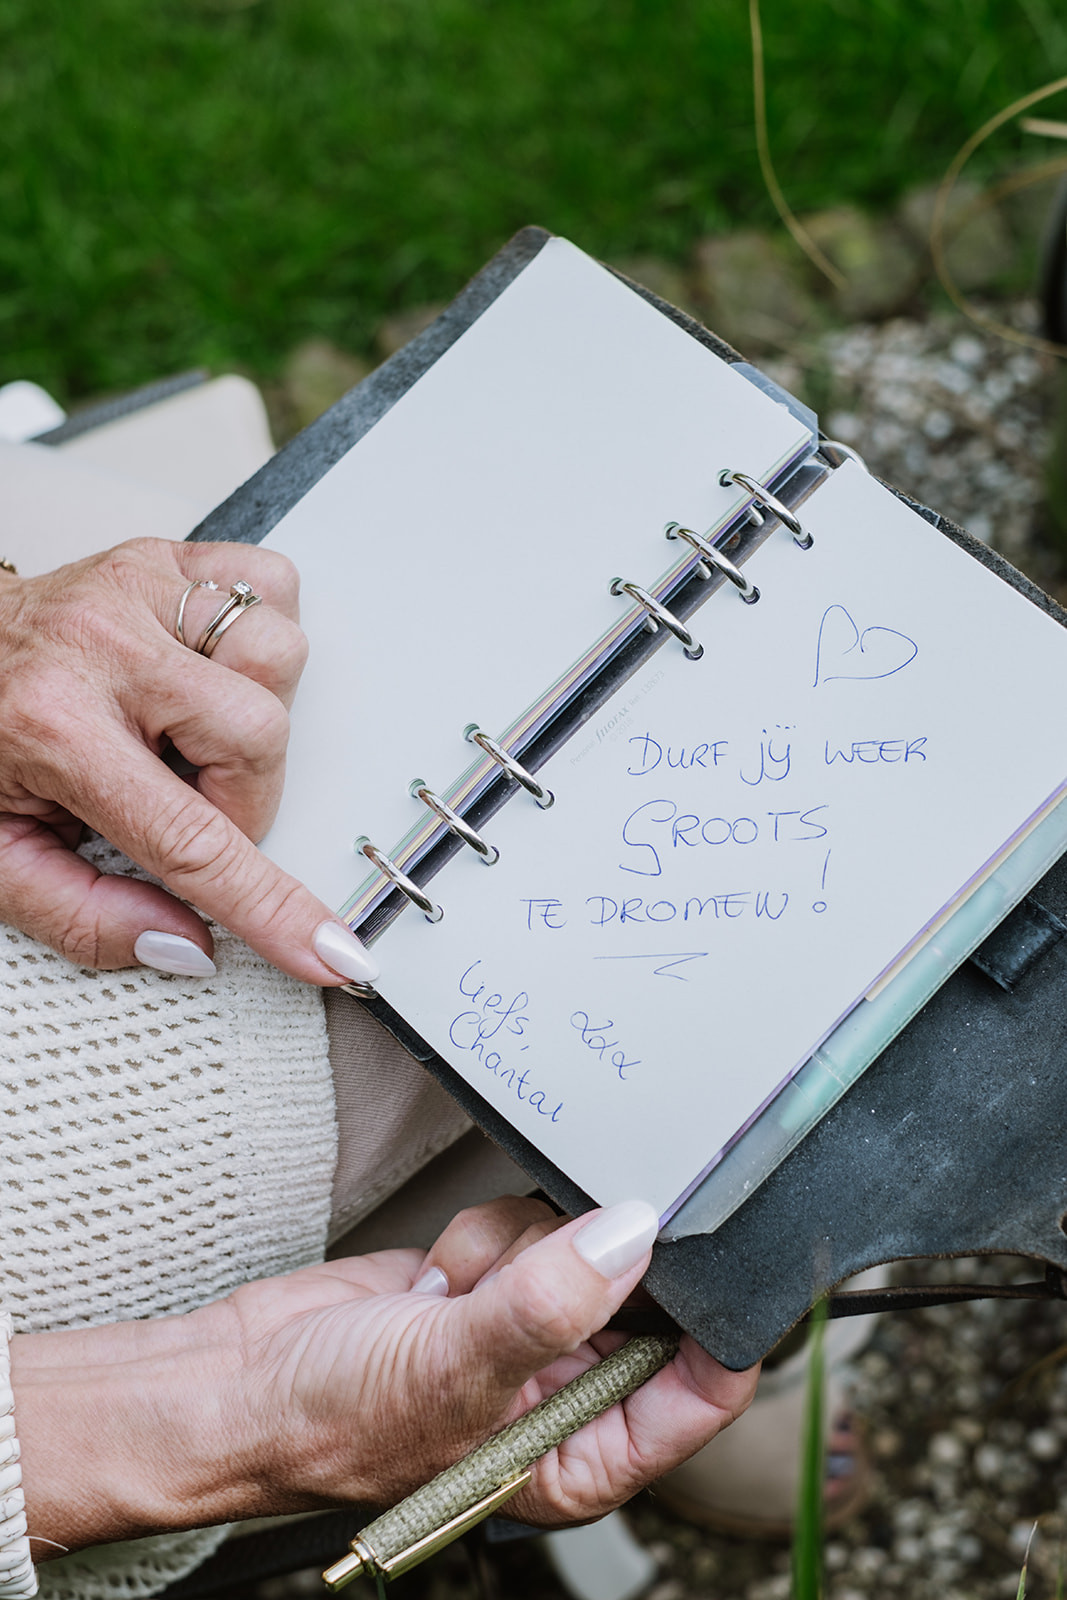 DURF jij WEER
GROOTS
TE DROMEN!
liefs, xxx
Chantal
filofax